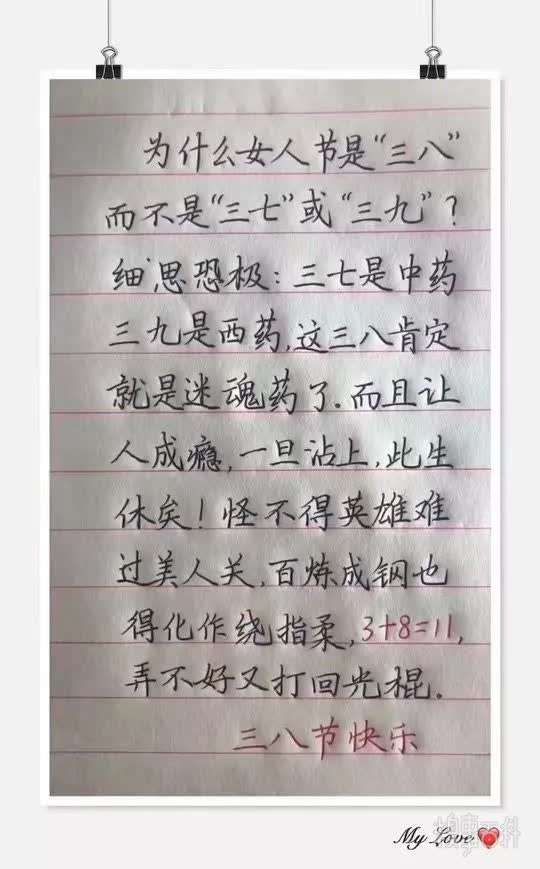 为什么女人节是“三八”
而不是“三七”或“三九”？
细思恐极：三七是中药
三九是西药，这三八肯定
就是迷魂药了．而且让
人成瘾，一旦沾上，此生
休矣！怪不得英雄难
过美人关，百炼成钢也
得化作绕指柔，3+8=11，
弄不好又打回光棍．
三八节快乐
My Love